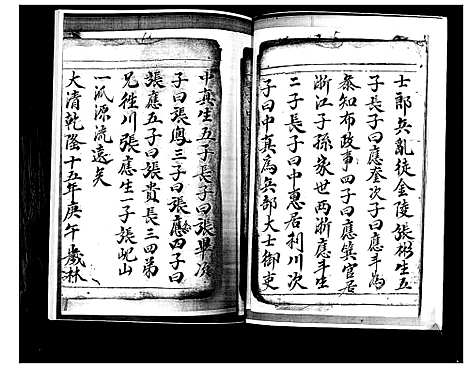 士郎兵亂徒金陵張彬生五
子長子曰應奎次子曰應斗為
泰知布政事四子曰應箕官居
浙江子孫家世两浙應斗生
二子長子曰中惠居利川次
子曰中真為兵部大士御吏
中真生五子長子曰張畢
子曰張鳳三子曰張應四子曰
張應五子曰張貴長三四弟
兄徃川張應生一子張屺山
一派源流遠矣
大清乾隆十五年庚午歲林